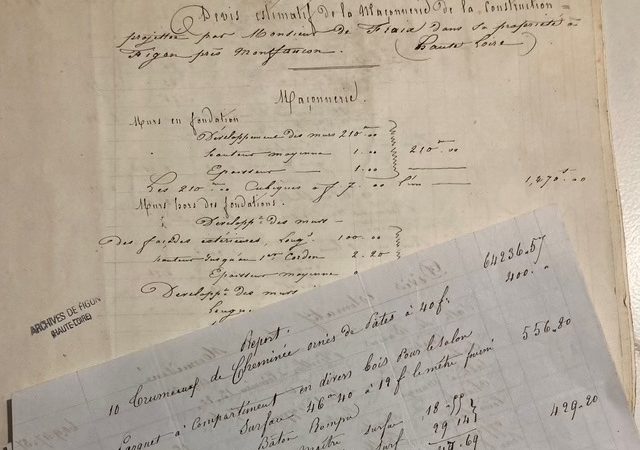 Devis estimatif de la Maçonnerie de la Construction =
projettée par Monsieur de Fraix dans sa propriété à
Figon près Montfaucon. (Haute Loire)
Maçonnerie.
Murs en fondation
Développement des murs 210m.00
hauteur moyenne 1.00 210m.00
Epaisseur 1.00
Les 210m.00 Cubiques à f 7.00 l'un 1,470f.00
Murs hors des fondations.
à Développt des murs
Des façades extérieures, Longr 100.00
hauteur jusqu'au 1er Cordon 2.20
Epaisseur moyenne
Développt des murs
Longr
ARCHIVES DE FIGON
(HAUTE-LOIRE)
Report. 64236.57
10 Trumeaux de Cheminée ornés de Pâtes à 40 f. 400.
Parquet à Compartiment en divers bois Pour le Salon
Surface 46m 40 à 12 f le mètre fourni 556.80
Bâton Rompu
surface 18.55
surf 29.14 429.20
47.69